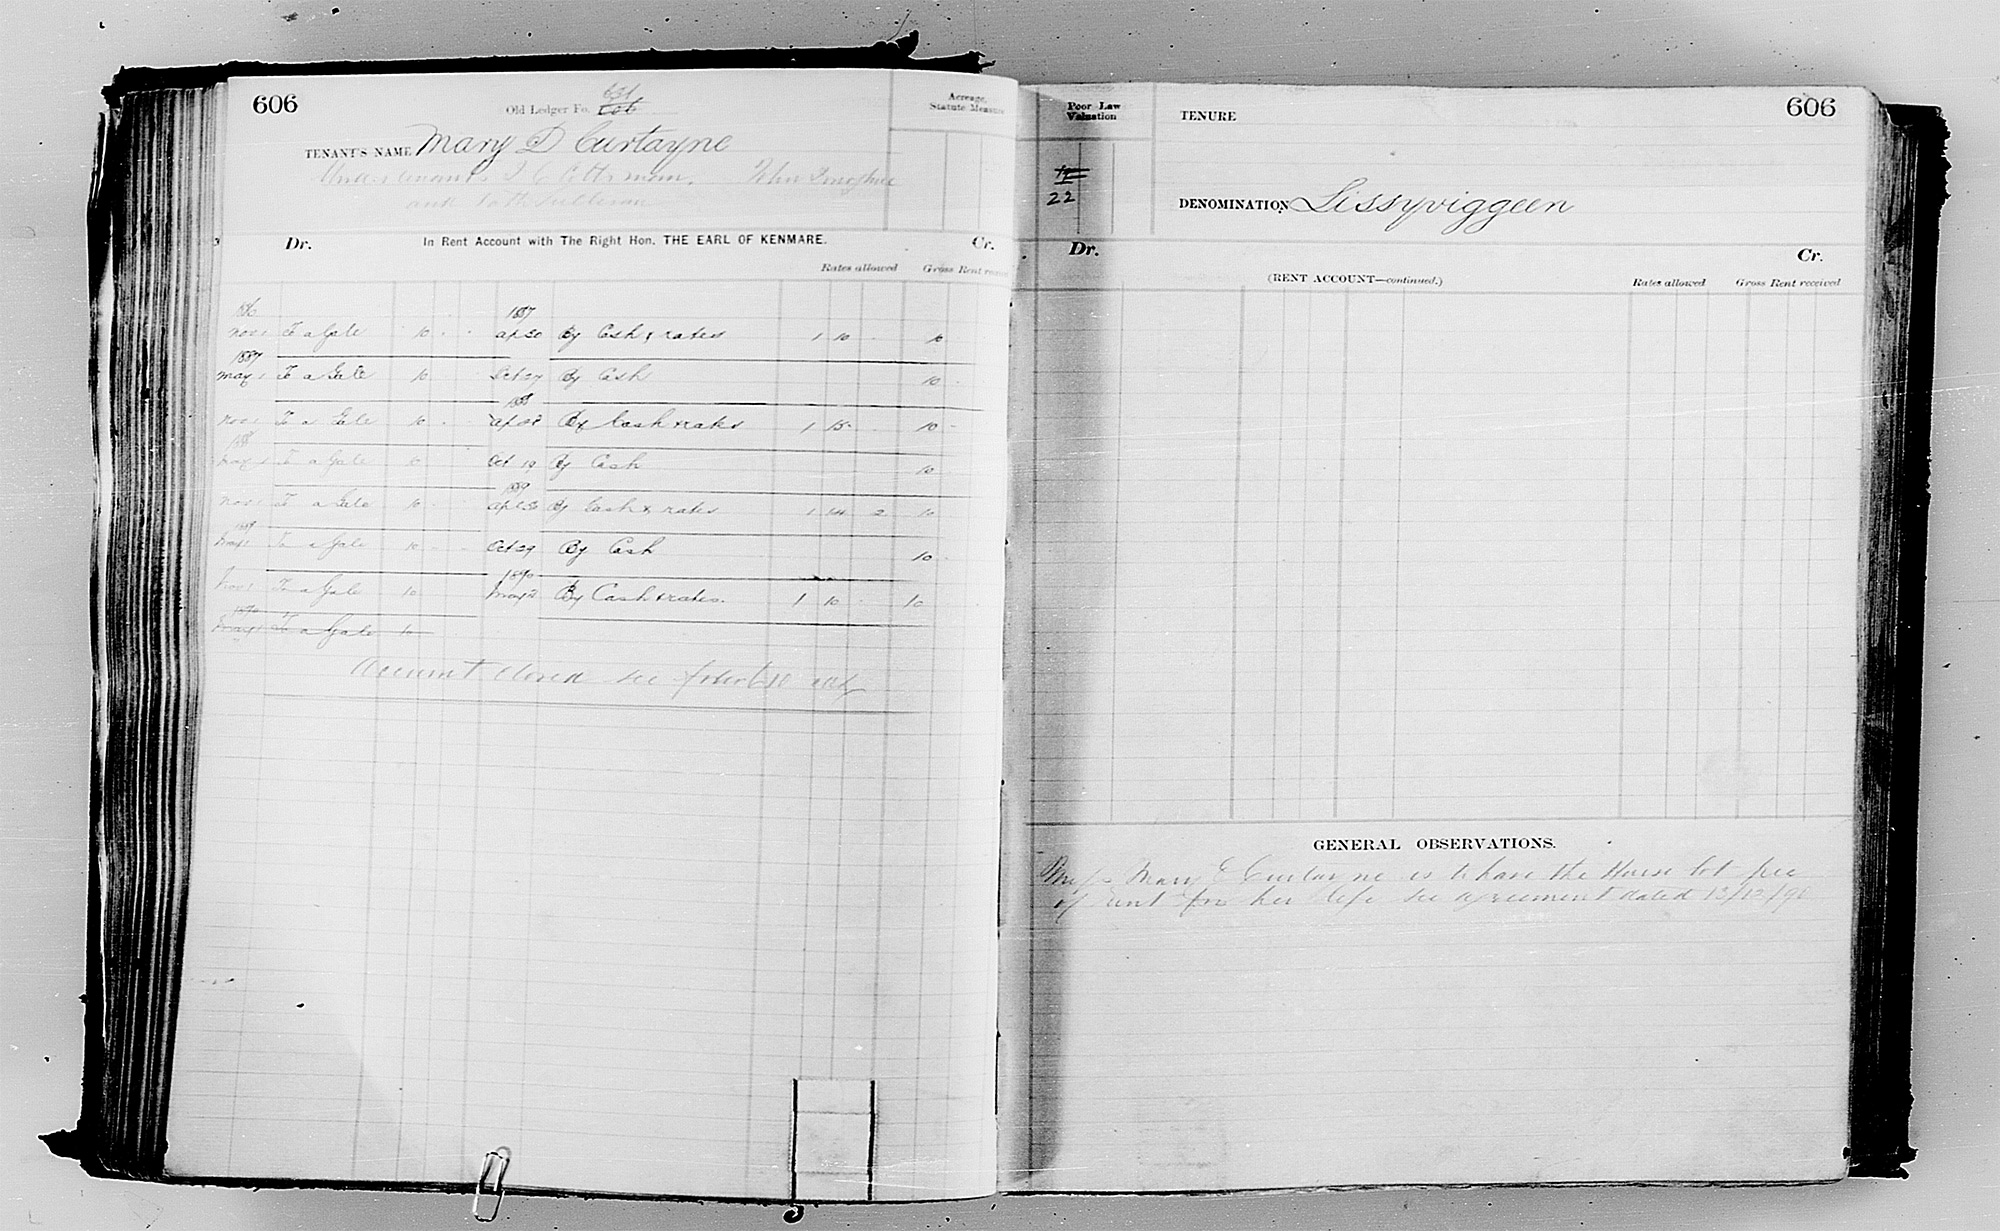 606
Old Ledger Fo. 606
631
Acreage, Statute Measure
TENANT'S NAME Mary D Curtayne
Undertenants John Donoghue
and Sullivan
Dr. In Rent Account with The Right Hon. THE EARL OF KENMARE. Cr.
Rates allowed Gross Rent received
1887
Nov 1 To a Gale 10 Ap 30 By Cash & rates 1 10 10
1887
May 1 To a Gale 10 Oct 27 By Cash 10
1888
Nov 1 To a Gale 10 Ap By Cash & rates 1 15 10
1888
May 1 To a Gale 10 Oct 19 By Cash 10
1889
Nov 1 To a Gale 10 Apl 30 By Cash & rates 1 14 2 10
1889
May 1 To a Gale 10 Oct 29 By Cash 10
1890
Nov 1 To a Gale 10 May By Cash & rates. 1 10 10
1890
May 1 To a Gale 10
Account closed see folio
606
Poor Law Valuation
TENURE
22
DENOMINATION Lissyviggeen
Dr. Cr.
(RENT ACCOUNT—continued.) Rates allowed Gross Rent received
GENERAL OBSERVATIONS.
Miss Mary E Curtayne is to have the House lot free
of rent for her life see agreement dated 13/12/90